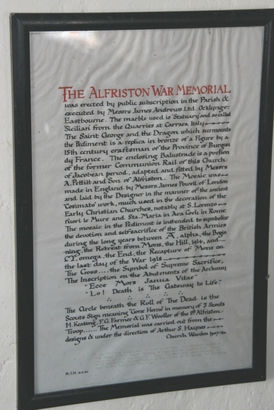 THE ALFRISTON WAR MEMORIAL
was erected by public subscription in the Parish &
executed by Messrs James Andrews Ltd. Ocklynge,
Eastbourne. The marble used is 'Statuary' and so called
Sicilian from the Quarries at Carrara Italy
The Saint George and the Dragon which surmounts
the Pediment is a replica in bronze of a figure by a
15th century craftsman of the Province of Burgun
dy France. The enclosing Balustrade is a portion
of the former Communion Rail of this Church
of Jacobean period, adapted and fitted by Messrs
A. Pettitt and Son of Alfriston. The Mosaic was
made in England by Messrs James Powell of London
and laid by the Designer in the manner of the ancient
work, much used in the decoration of the
Early Christian Churches, notably at S. Lorenzo
fuori le Mura and Sta. Maria in Ara Coeli in Rome
The mosaic in the Pediment is intended to symbolize
the devotion and selfsacrifice of the British Armies
during the long years between A, alpha, the Begin
ning, the Retreat from Mons, the Hill, 1914, and
Ω, omega, the End, the Recapture of Mons on
the last day of the War 1918
The Cross, the Symbol of Supreme Sacrifice,
The Inscription on the Abutments of the Archway
"Ecce Mors Janua Vitae"
"Lo! Death is The Gateway to Life"
The Circle beneath the Roll of The Dead is the
Scouts Sign meaning "Gone Home" in memory of 3 Scouts
H. Keating, F.G. Furner & G.F. Wooller of the 1st Alfriston
Troop. The Memorial was carried out from the
designs & under the direction of Arthur S. Haynes
Church Warden